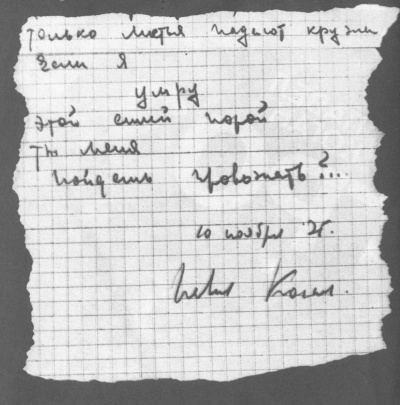 только листья падают кружа
Если я
умру
этой синей порой
ты меня
пойдешь провожать?...
10 ноября